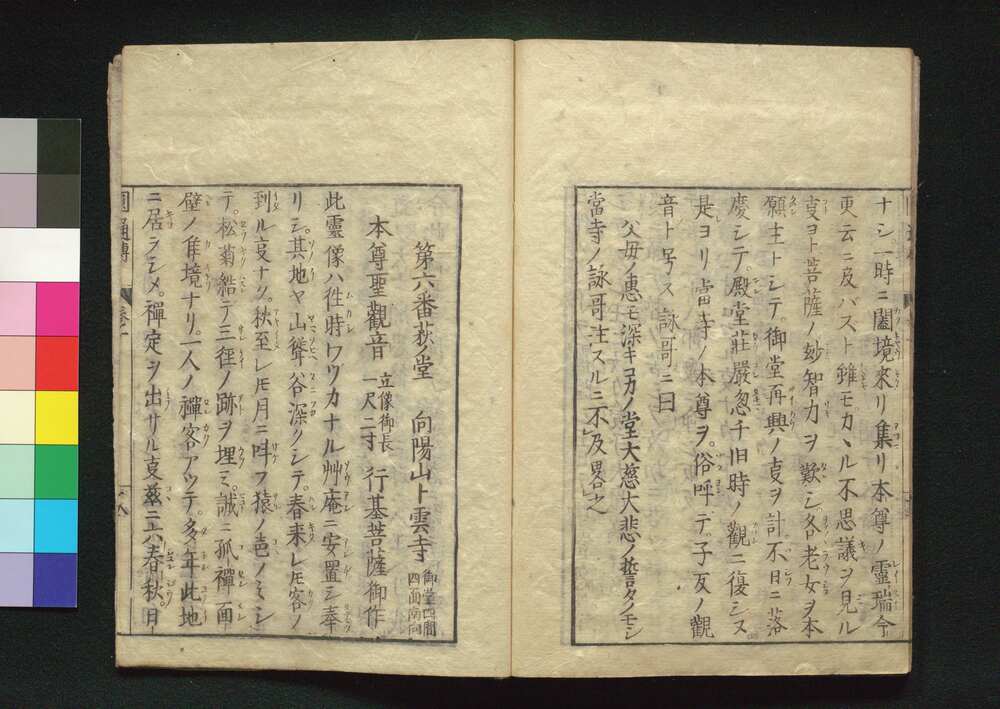 ナシ一時ニ闔境来リ集リ本尊ノ霊瑞今
更云ニ及バズト雖モカヽル不思議ヲ見ル
叓ヨト菩薩ノ妙智力ヲ歎シ各老女ヲ本
願主トシテ御堂再興ノ叓ヲ計不日ニ落
慶シテ殿堂荘嚴忽チ旧時ノ觀ニ復シヌ
是ヨリ當寺ノ本尊ヲ俗呼デ子反ノ觀
音ト号ス 詠哥ニ曰
父母ノ惠モ深キコカノ堂大慈大悲ノ誓タノモシ
當寺ノ詠哥注スルニ不及畧之
第六番荻ノ堂 向陽山卜雲寺 御堂四間四面南向
本尊聖觀音 立像御長一尺二寸 行基菩薩御作
此靈像ハ徃時ワヅカナル艸庵ニ安置シ奉
リシ其地ヤ山聳谷深クシテ春来レ𪜈客ノ
到ル叓ナク秋至レ𪜈月ニ叫フ猿ノ声ノミシ
テ松菊結テ三徑ノ跡ヲ埋ミ誠ニ孤禪面
壁ノ隹境ナリ一人ノ禪客アツテ多年此地
ニ居ラシメ禪定ヲ出サル叓茲ニ六春秋月
圓通傳 巻一